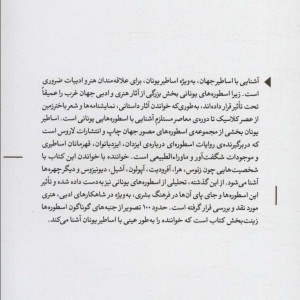 آشنایی با اساطیر جهان، به‌ویژه اساطیر یونان، برای علاقه‌مندان هنر و ادبیات ضروری
است. زیرا اسطوره‌های یونانی بخش بزرگی از آثار هنری و ادبی جهان غرب را عمیقاً
تحت تأثیر قرار داده‌اند، به‌طوری‌که خواندن آثار داستانی، نمایشنامه‌ها و شعر باختر‌زمین
از عصر کلاسیک تا دوره‌ی معاصر مستلزم آشنایی با اسطوره‌هایی یونانی است. اساطیر
یونان بخشی از مجموعه‌ی اسطوره‌های مصور جهان چاپ و انتشارات لاروس است
که دربرگیرنده‌ی روایات اسطوره‌ای درباره‌ی ایزدان، ایزدبانوان، قهرمانان اساطیری
و موجودات شگفت‌آور و ماوراءالطبیعی است. خواننده با خواندن این کتاب با
شخصیت‌هایی چون زئوس، هرا، آفرودیت، آپولون، آشیل، دیونیزوس و دیگر چهره‌ها
آشنا می‌شود. از این گذشته، تحلیلی از اسطوره‌های یونانی نیز به‌دست داده شده و تأثیر
این اسطوره‌ها و جای پای آن‌ها در فرهنگ بشری، به‌ویژه در شاهکارهای ادبی، هنری
مورد نقد و بررسی قرار گرفته است. حدود ۱۰۰ تصویر از جنبه‌های گوناگون اسطوره‌ها
زینت‌بخش کتاب است که خواننده را به‌طور عینی با اساطیر یونان آشنا می‌کند.